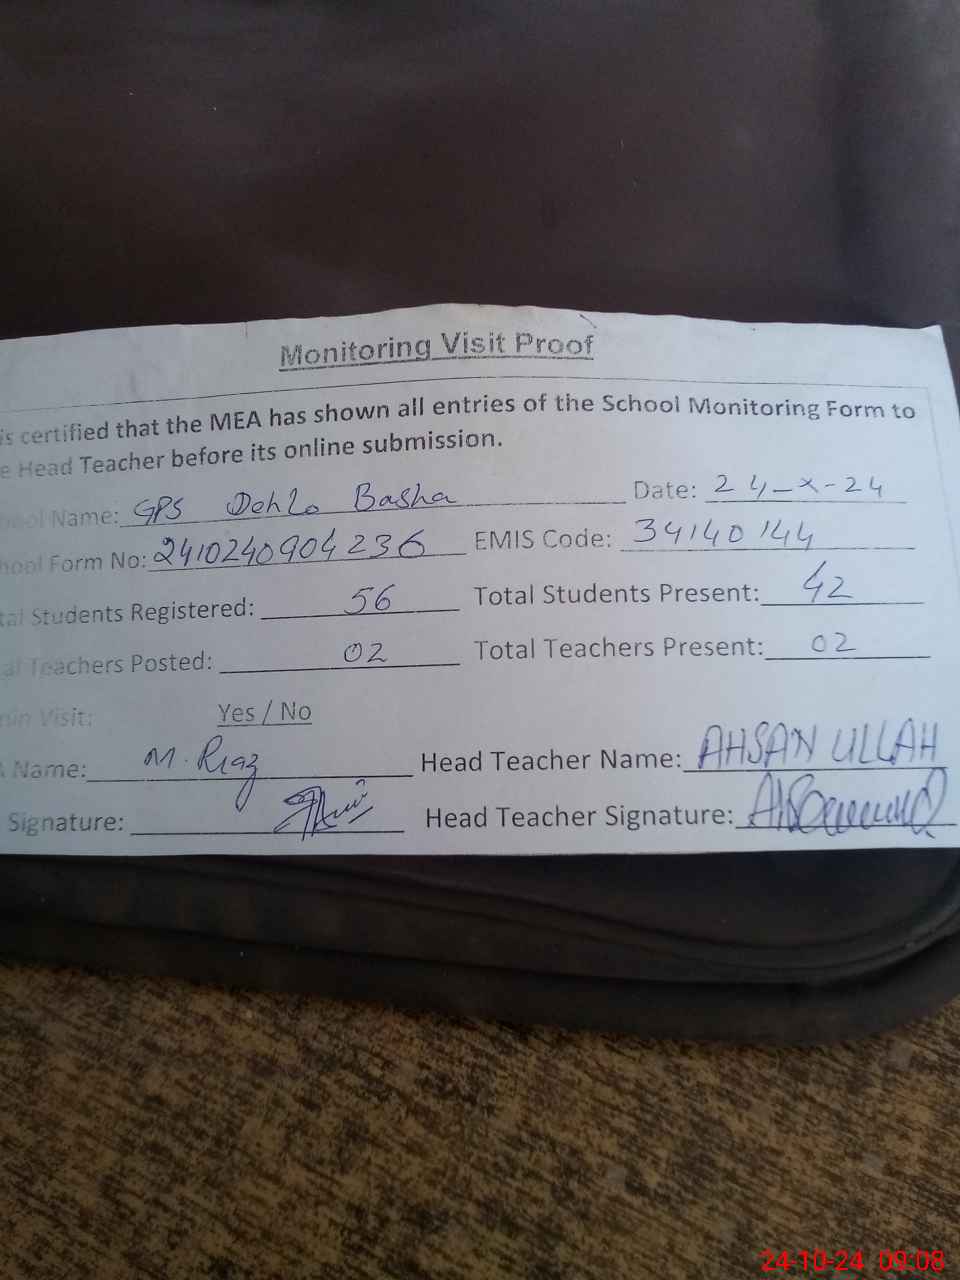 Monitoring Visit Proof
is certified that the MEA has shown all entries of the School Monitoring Form to
e Head Teacher before its online submission.
hool Name: GPS Dehlo Basha Date: 24-X-24
hool Form No: 2410240904236 EMIS Code: 34140144
tal Students Registered: 56 Total Students Present: 42
al Teachers Posted: 02 Total Teachers Present: 02
min Visit: Yes / No
A Name: M. Riaz Head Teacher Name: AHSAN ULLAH
Signature: Head Teacher Signature:
24-10-24 09:08